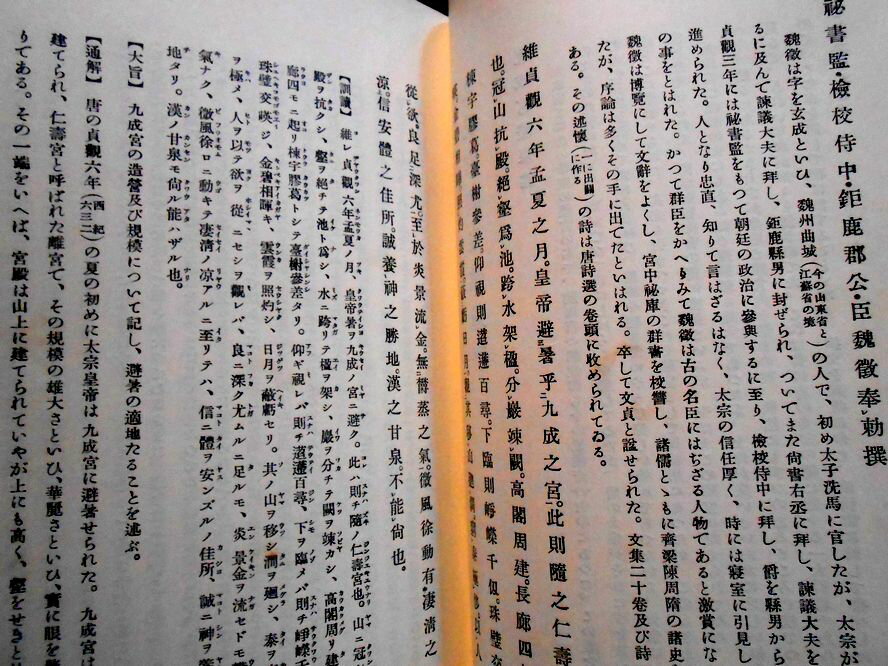 秘書監・檢校侍中・鉅鹿郡公・臣魏徵奉勅撰
魏徵は字を玄成といひ、魏州曲城(今の山東省と江蘇省の境)の人で、初め太子洗馬に官したが、太宗が
るに及んで諫議大夫に拜し、鉅鹿縣男に封ぜられ、ついでまた尙書右丞に拜し、諫議大夫を
貞觀三年には祕書監をもつて朝廷の政治に參與するに至り、檢校侍中に拜し、爵を縣男から
進められた。人となり忠直、知りて言はざるはなく、太宗の信任厚く、時には寢室に引見し
の事をとはれた。かつて群臣をかへりみて魏徵は古の名臣にはぢざる人物であると激賞にな
魏徵は博覽にして文辭をよくし、宮中祕庫の群書を校讐し、諸儒とゝもに齊梁陳周隋の諸史
たが、序論は多くその手に出でたといはれる。卒して文貞と諡せられた。文集二十卷及び詩
ある。その述懷(一に出關に作る)の詩は唐詩選の卷頭に收められてゐる。
維貞觀六年孟夏之月。皇帝避暑乎九成之宮。此則隨之仁壽
也。冠山抗殿。絕壑爲池。跨水架楹。分巖竦闕。高閣周建。長廊四
棟宇膠葛。臺榭參差。仰視則迢遰百尋。下臨則崢嶸千仞。珠璧交
從欲。良足深尤。至於炎景流金。無鬱蒸之氣。微風徐動。有凄淸之
涼。信安體之佳所。誠養神之勝地。漢之甘泉。不能尙也。
【訓讀】維レ貞觀六年孟夏ノ月、皇帝暑ヲ九成ノ宮ニ避ク。此ハ則チ隨ノ仁壽宮也。山ニ冠
殿ヲ抗クシ、壑ヲ絕チテ池ト爲シ、水ニ跨リテ楹ヲ架シ、巖ヲ分チテ闕ヲ竦カシ、高閣周リ建
廊四モニ起リ棟宇膠葛トシテ臺榭參差タリ。仰ギ視レバ則チ迢遰百尋、下ヲ臨メバ則チ崢嶸千
珠璧交暎ジ、金碧相暉キ、雲霞ヲ照灼シ、日月ヲ蔽虧セリ。其ノ山ヲ移シ澗ヲ廻シ、泰ヲ
ヲ極メ、人ヲ以テ欲ヲ從ニセシヲ觀レバ、良ニ深ク尤ムルニ足ルモ、炎景金ヲ流セドモ
氣ナク、微風徐ロニ動キテ凄淸ノ凉アルニ至リテハ、信ニ體ヲ安ンズルノ佳所、誠ニ神ヲ養
地タリ。漢ノ甘泉モ尙ル能ハザル也。
【大旨】九成宮の造營及び規模について記し、避暑の適地たることを述ぶ。
【通解】唐の貞觀六年(西紀六三二)の夏の初めに太宗皇帝は九成宮に避暑せられた。九成宮は
建てられ、仁壽宮と呼ばれた離宮で、その規模の雄大さといひ、華麗さといひ、實に眼を
りである。その一端をいへば、宮殿は山上に建てられていやが上にも高く、壑をせきと